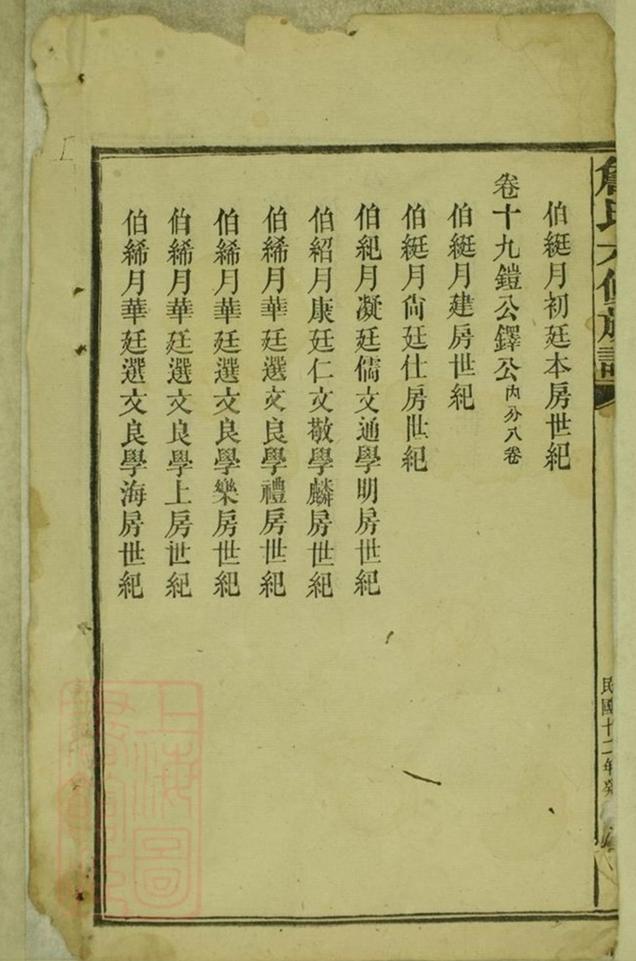 詹氏六修族譜
民國十二年癸
伯綎月初廷本房世紀
卷十九鎧公鐸公內分八卷
伯綎月建房世紀
伯綎月尙廷仕房世紀
伯紀月凝廷儒文通學明房世紀
伯紹月康廷仁文敬學麟房世紀
伯絺月華廷選文良學禮房世紀
伯絺月華廷選文良學樂房世紀
伯絺月華廷選文良學上房世紀
伯絺月華廷選文良學海房世紀
上海圖